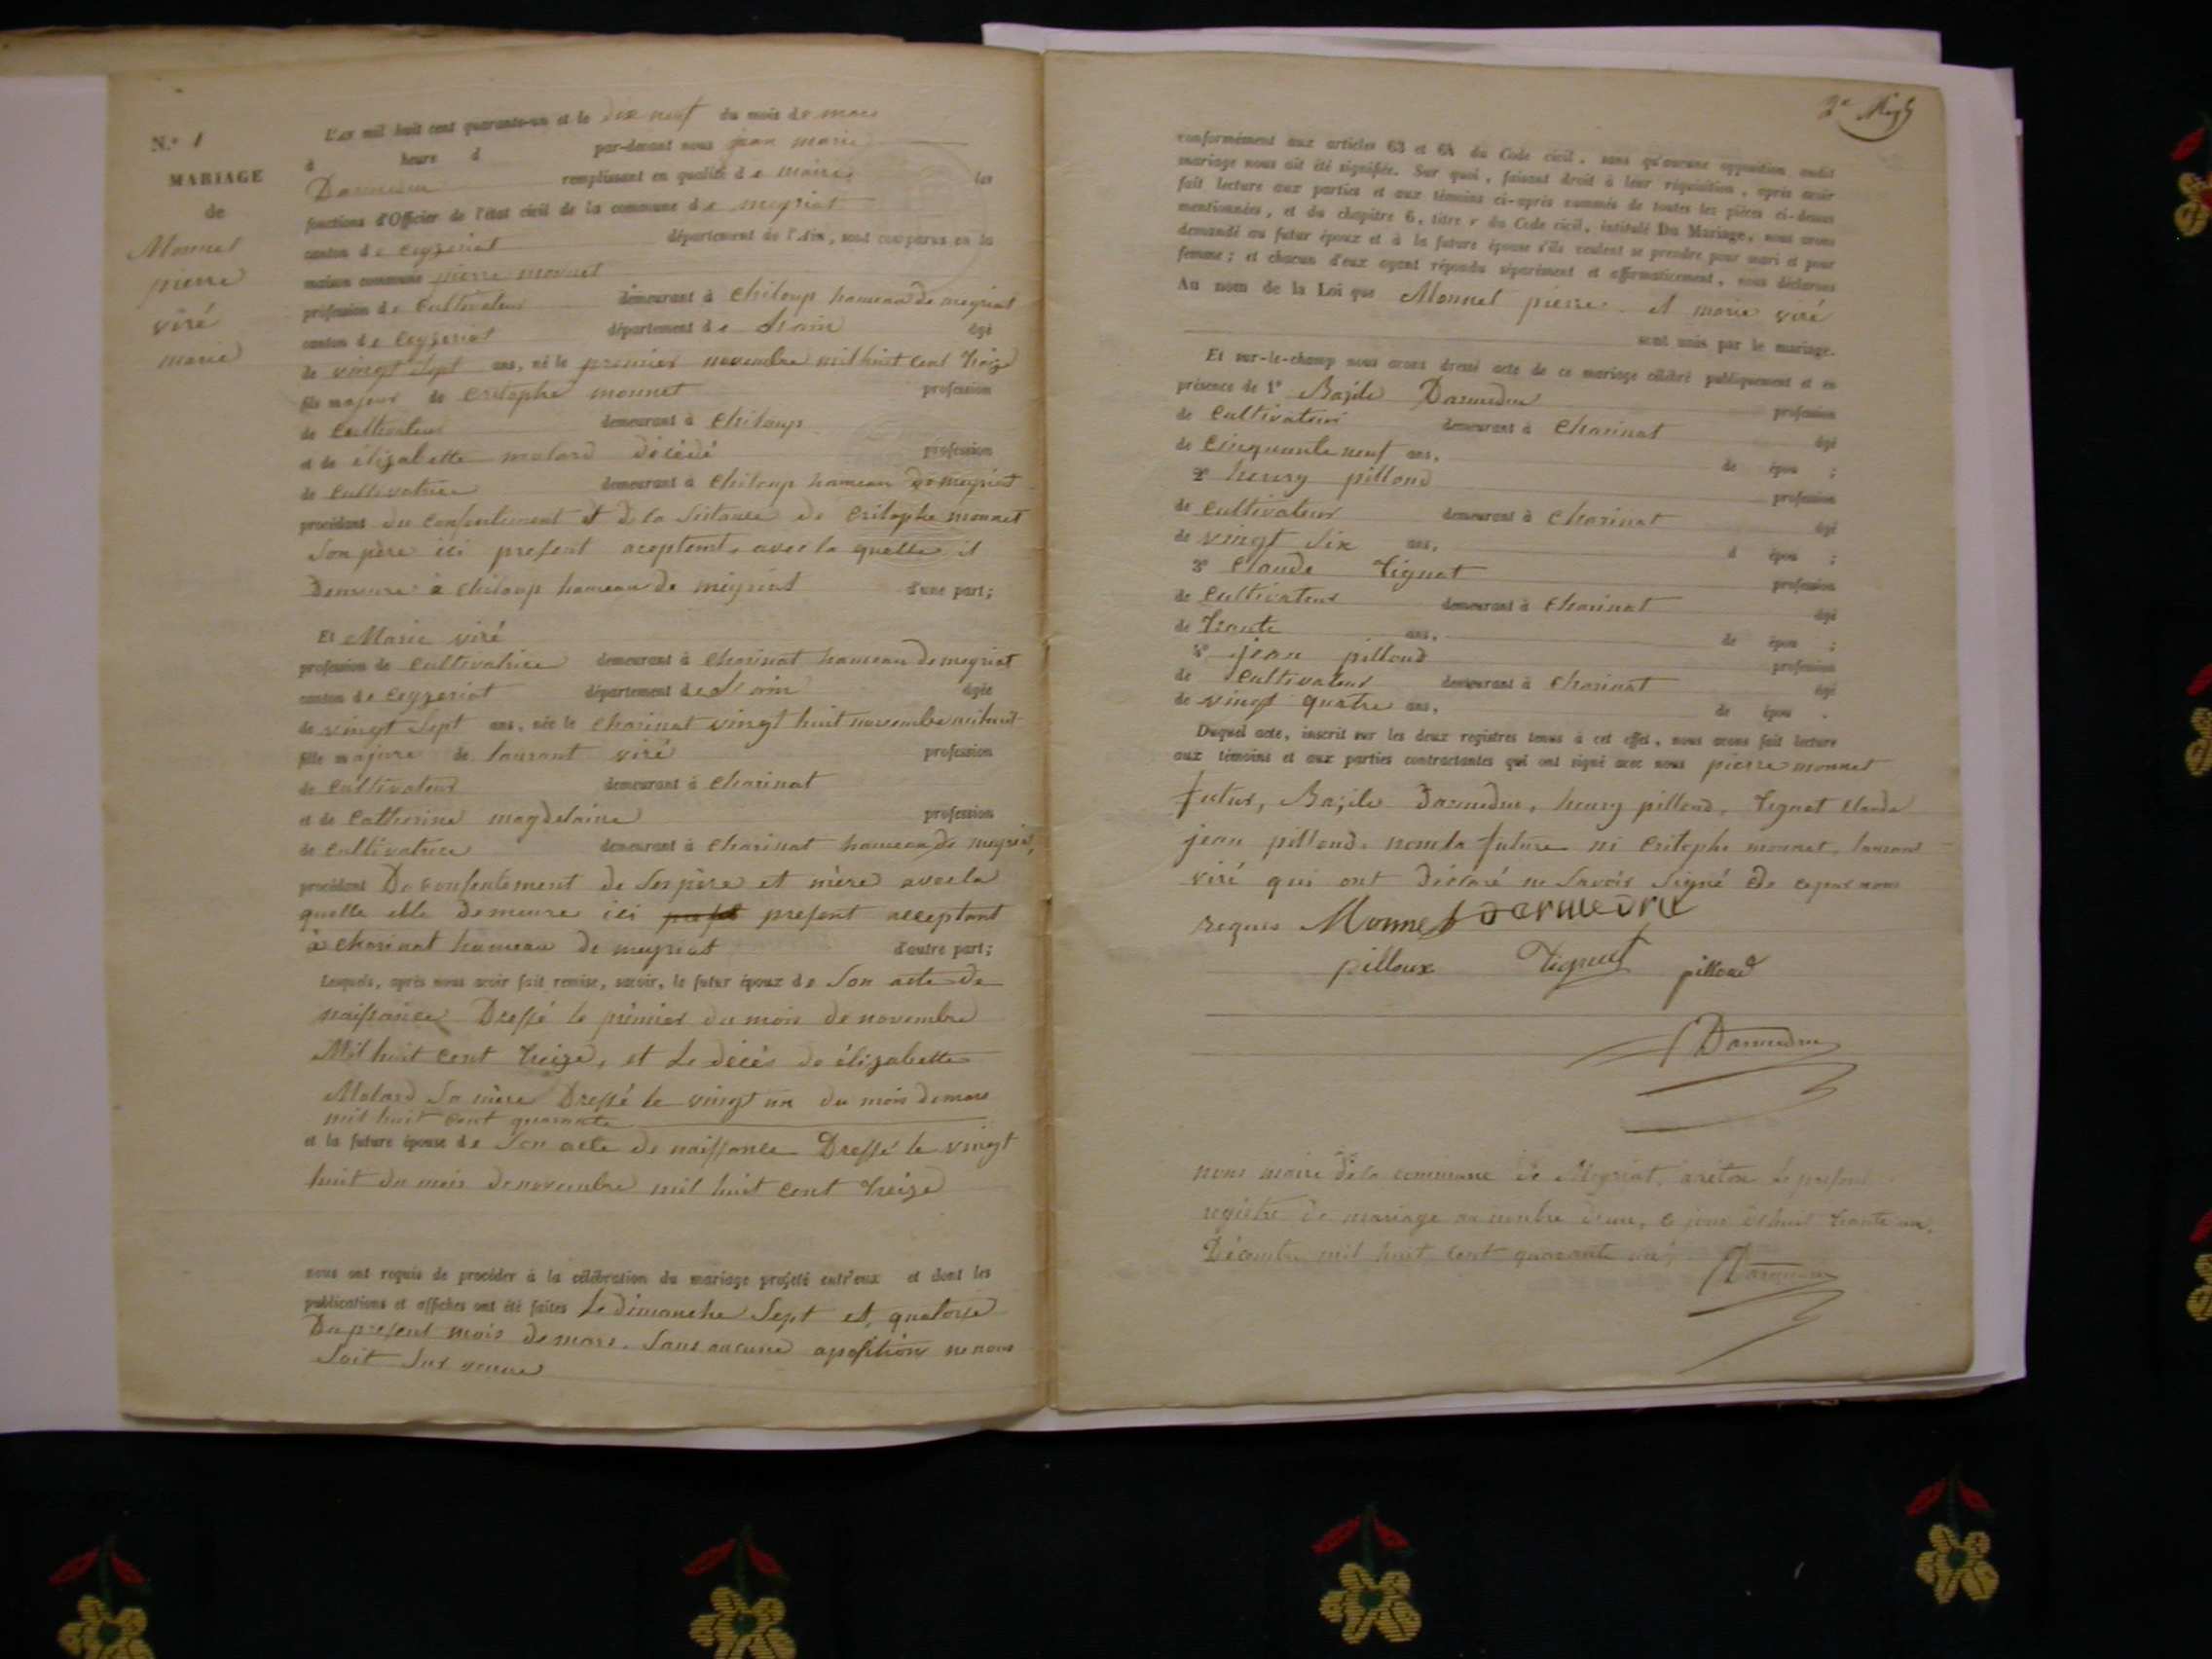 N.º 1
MARIAGE
de
Monnet
pierre
viré
marie
L'an mil huit cent quarante-un et le dix neuf du mois de mars
à heure d par-devant nous jean marie
Darmedru remplissant en qualité de maire les
fonctions d'Officier de l'état civil de la commune de meyriat
canton de Ceyzeriat département de l'Ain, sont comparus en la
maison commune pierre monnet
profession de Cultivateur demeurant à Chiloup hameau de meyriat
canton de Ceyzeriat département de Lain âgé
de vingt Sept ans, né le premier novembre mil huit Cent treize
fils majeur de Critophe monnet profession
de Cultivateur demeurant à Chiloup
et de élizabette molard décédé profession
de Cultivatrice demeurant à Chiloup hameau de meyriat
procédant du Consentement et de la Sistance de Critophe monnet
Son père ici present aceptent avec la quelle il
Demeure à Chiloup hameau de meyriat d'une part;
Et Marie viré
profession de Cultivatrice demeurant à Charinat hameau de meyriat
canton de Ceyzeriat département de Lain âgée
de vingt Sept ans, née le Charinat vingt huit novembre
fille majeure de laurant viré profession
de Cultivateur demeurant à Charinat
et de Catherine magdelaine profession
de Cultivatrice demeurant à Charinat hameau de meyriat
procédant De Consentement de Ses père et mère avec la
quelle elle demeure ici present acceptant
à Charinat hameau de meyriat d'autre part;
Lesquels, après nous avoir fait remise, savoir, le futur époux de Son acte de
naissance Dressé le premier du mois de novembre
Mil huit Cent treize, et Le décés de élizabette
Molard Sa mère Dressé le vingt un du mois de mars
mil huit Cent quarante
et la future épouse de Son acte de naissance Dressé le vingt
huit du mois de novembre mil huit Cent treize
nous ont requis de procéder à la célébration du mariage projeté entr'eux et dont les
publications et affiches ont été faites Le Dimanche Sept et quatorze
Du present mois de mars. Sans aucune aposition ne nous
Soit Sur venue
2e
conformément aux articles 63 et 64 du Code civil, sans qu'aucune opposition audit
mariage nous ait été signifiée. Sur quoi, faisant droit à leur réquisition, après avoir
fait lecture aux parties et aux témoins ci-après nommés de toutes les pièces ci-dessus
mentionnées, et du chapitre 6, titre v du Code civil, intitulé Du Mariage, nous avons
demandé au futur époux et à la future épouse s'ils veulent se prendre pour mari et pour
femme; et chacun d'eux ayant répondu séparément et affirmativement, nous déclarons
Au nom de la Loi que Monnet pierre et marie viré
sont unis par le mariage.
Et sur-le-champ nous avons dressé acte de ce mariage célébré publiquement et en
présence de 1º Bazile Darmedru profession
de Cultivateur demeurant à Charinat âgé
de Cinquante neuf ans, de épou ;
2º henry pilloud profession
de Cultivateur demeurant à Charinat âgé
de vingt Six ans, d épou ;
3º Claude tignat profession
de Cultivateur demeurant à Charinat âgé
de trente ans, de épou ;
4º jean pilloud profession
de Cultivateur demeurant à Charinat âgé
de vingt quatre ans, de épou .
Duquel acte, inscrit sur les deux registres tenus à cet effet, nous avons fait lecture
aux témoins et aux parties contractantes qui ont signé avec nous pierre monnet
futur, Bazile Darmedru, henry pilloud, tignat Claude
jean pilloud. non la future ni Critophe monnet, lauran
viré qui ont déclaré ne Savoir Signé de ce par nous
requis Monnet Darmedru
pilloux Tignat pilloud
Darmedru
nous maire de la commune de Meyriat, areton Le present
registre de mariage au nombre d'une, ce jour d'huit trente un
Décembre mil huit Cent quarante un,
Darmedru